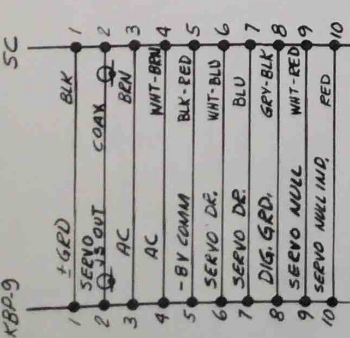 KBP-9 5C
1 ±GRD BLK 1
2 SERVO 15 OUT COAX 2
3 AC BRN 3
4 AC WHT-BRN 4
5 -8V COMM BLK-RED 5
6 SERVO DR. WHT-BLU 6
7 SERVO DR. BLU 7
8 DIG. GRD. GRY-BLK 8
9 SERVO NULL WHT-RED 9
10 SERVO NULL IND. RED 10